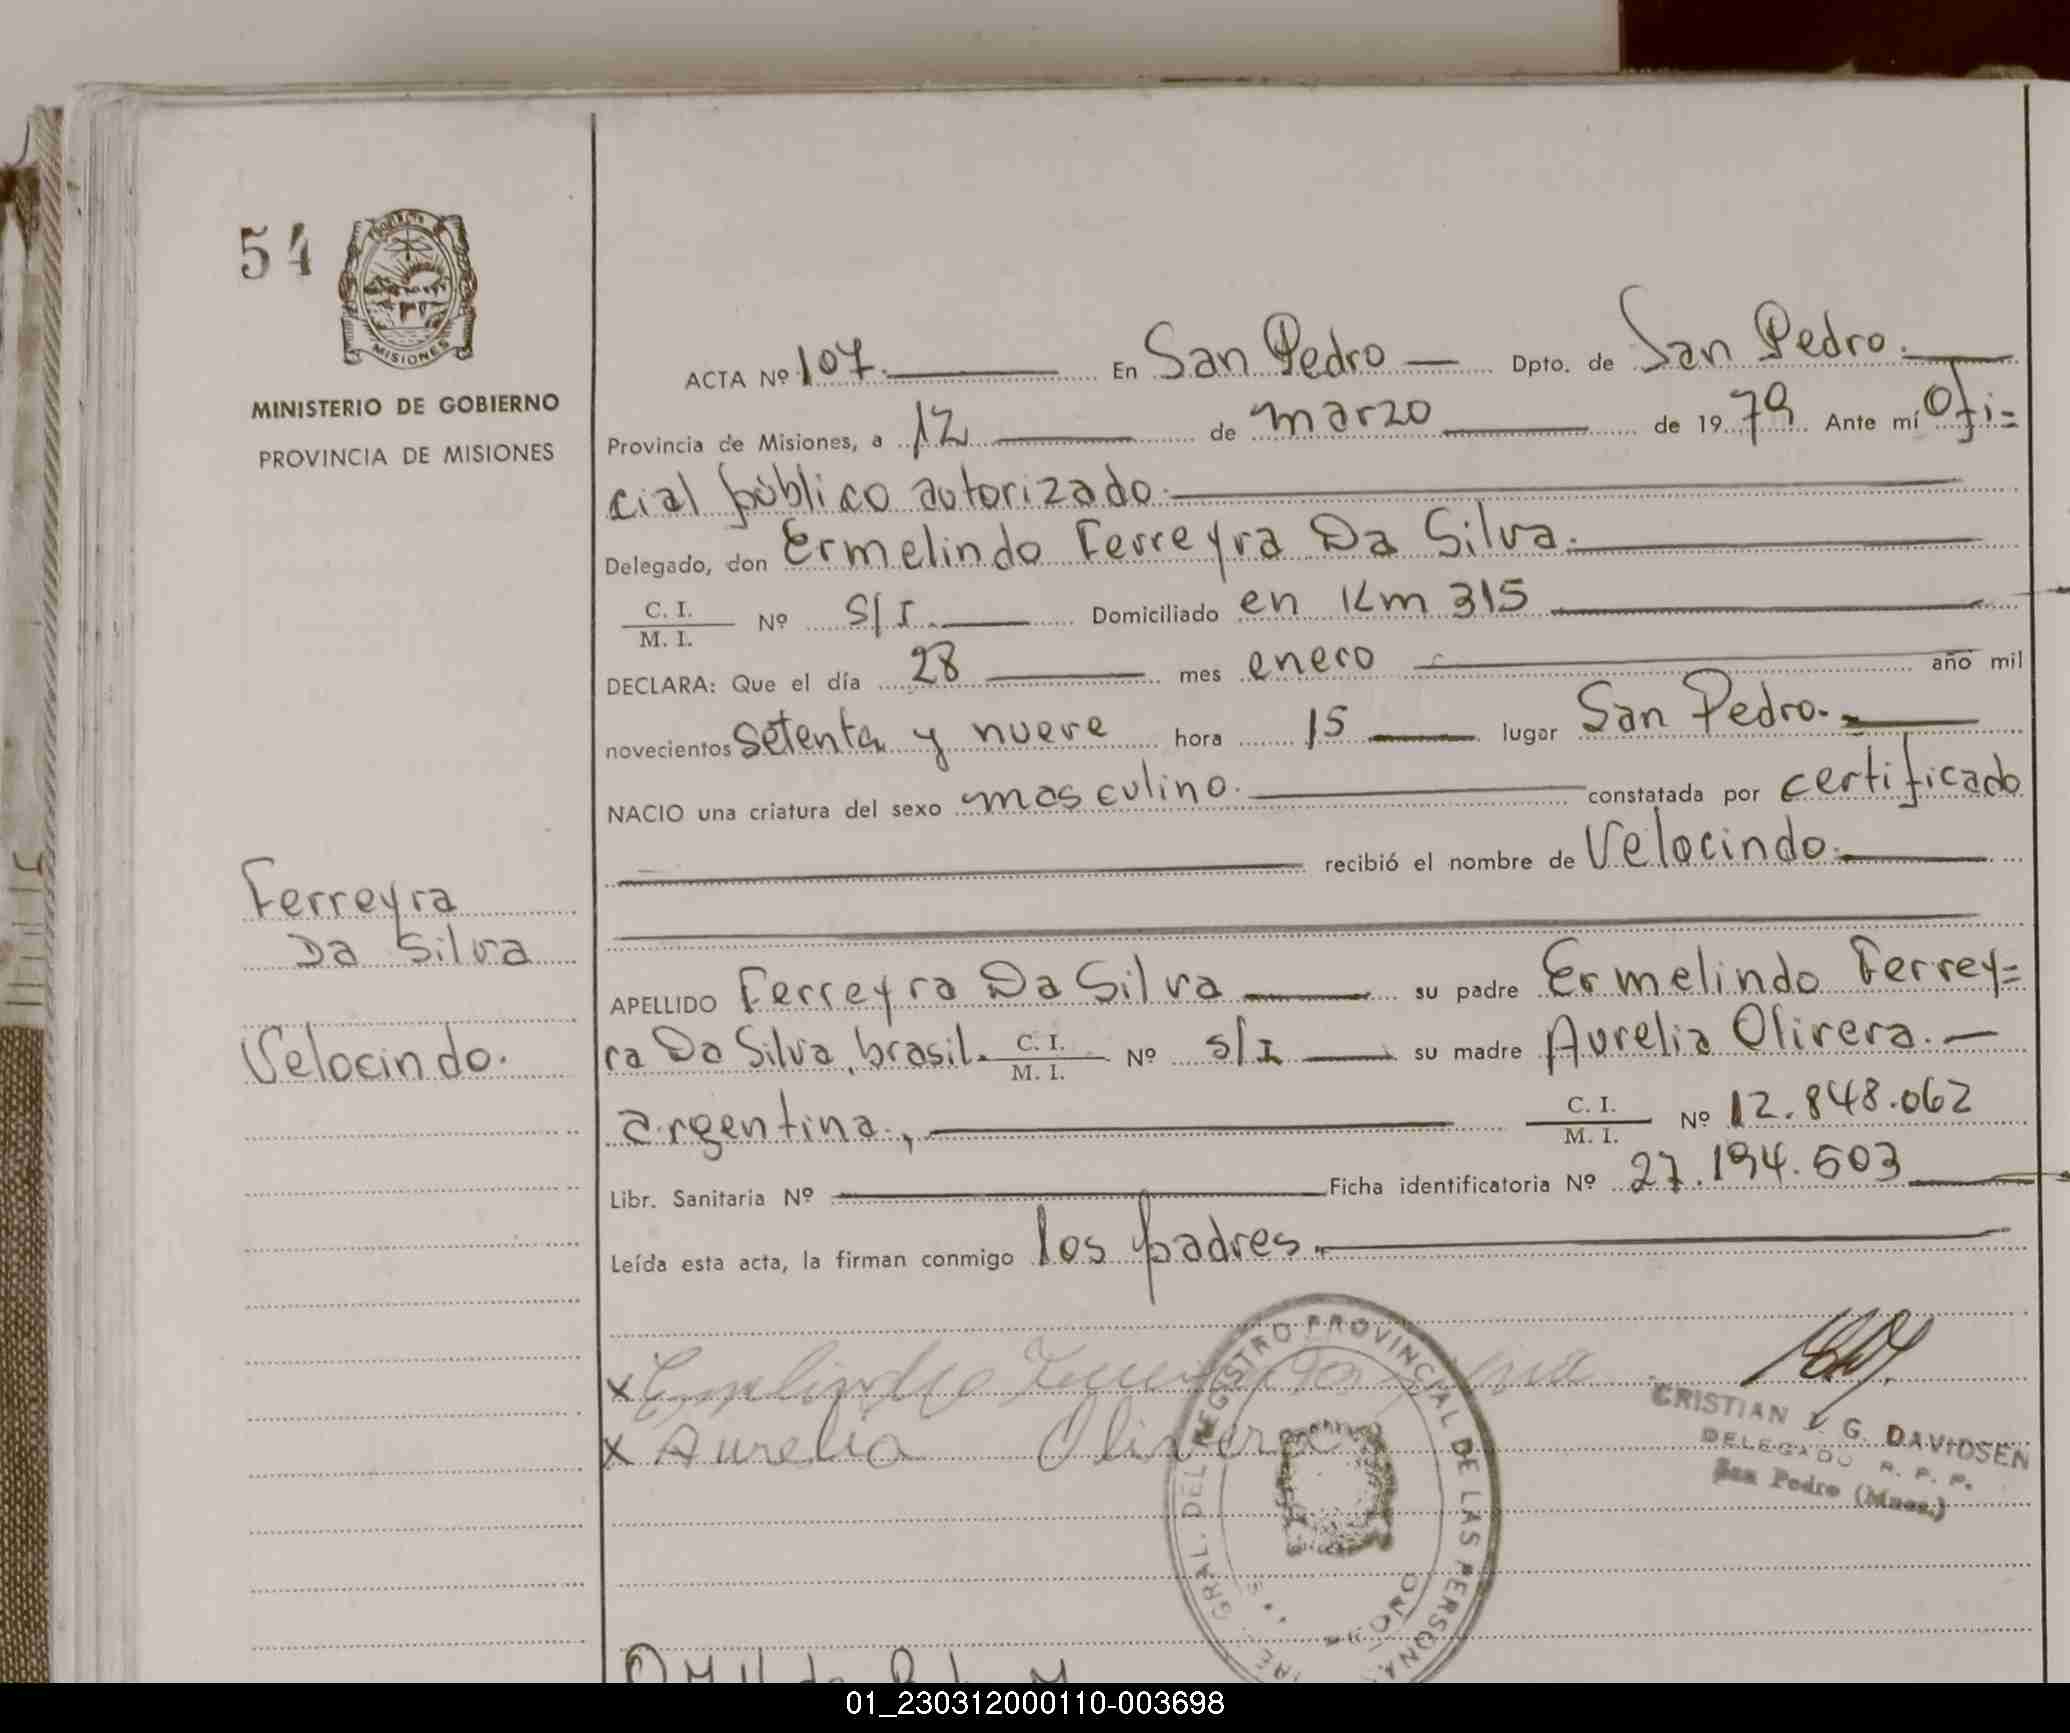 54
MISIONES
MINISTERIO DE GOBIERNO
PROVINCIA DE MISIONES
Ferreyra
Da Silva
Velocindo.
ACTA Nº 107. En San Pedro — Dpto. de San Pedro.
Provincia de Misiones, a 12 de marzo de 1979 Ante mí Ofi=
cial público autorizado.
Delegado, don Ermelindo Ferreyra Da Silva.
C. I. / M. I. Nº S/I. Domiciliado en Km 315
DECLARA: Que el día 28 mes enero año mil
novecientos setenta y nueve hora 15 lugar San Pedro.-
NACIO una criatura del sexo masculino. constatada por certificado
recibió el nombre de Velocindo.
APELLIDO Ferreyra Da Silva su padre Ermelindo Ferrey=
ra Da Silva, brasil. C. I. / M. I. Nº s/I su madre Aurelia Olivera.—
argentina., C. I. / M. I. Nº 12.848.062
Libr. Sanitaria Nº Ficha identificatoria Nº 27.194.503
Leída esta acta, la firman conmigo los padres.
x
x Aurelia Olivera
GRAL. DEL REGISTRO PROVINCIAL DE LAS PERSONA
CRISTIAN G. DAVIDSEN
DELEGADO R. P. P.
San Pedro (Mnes.)
01_230312000110-003698